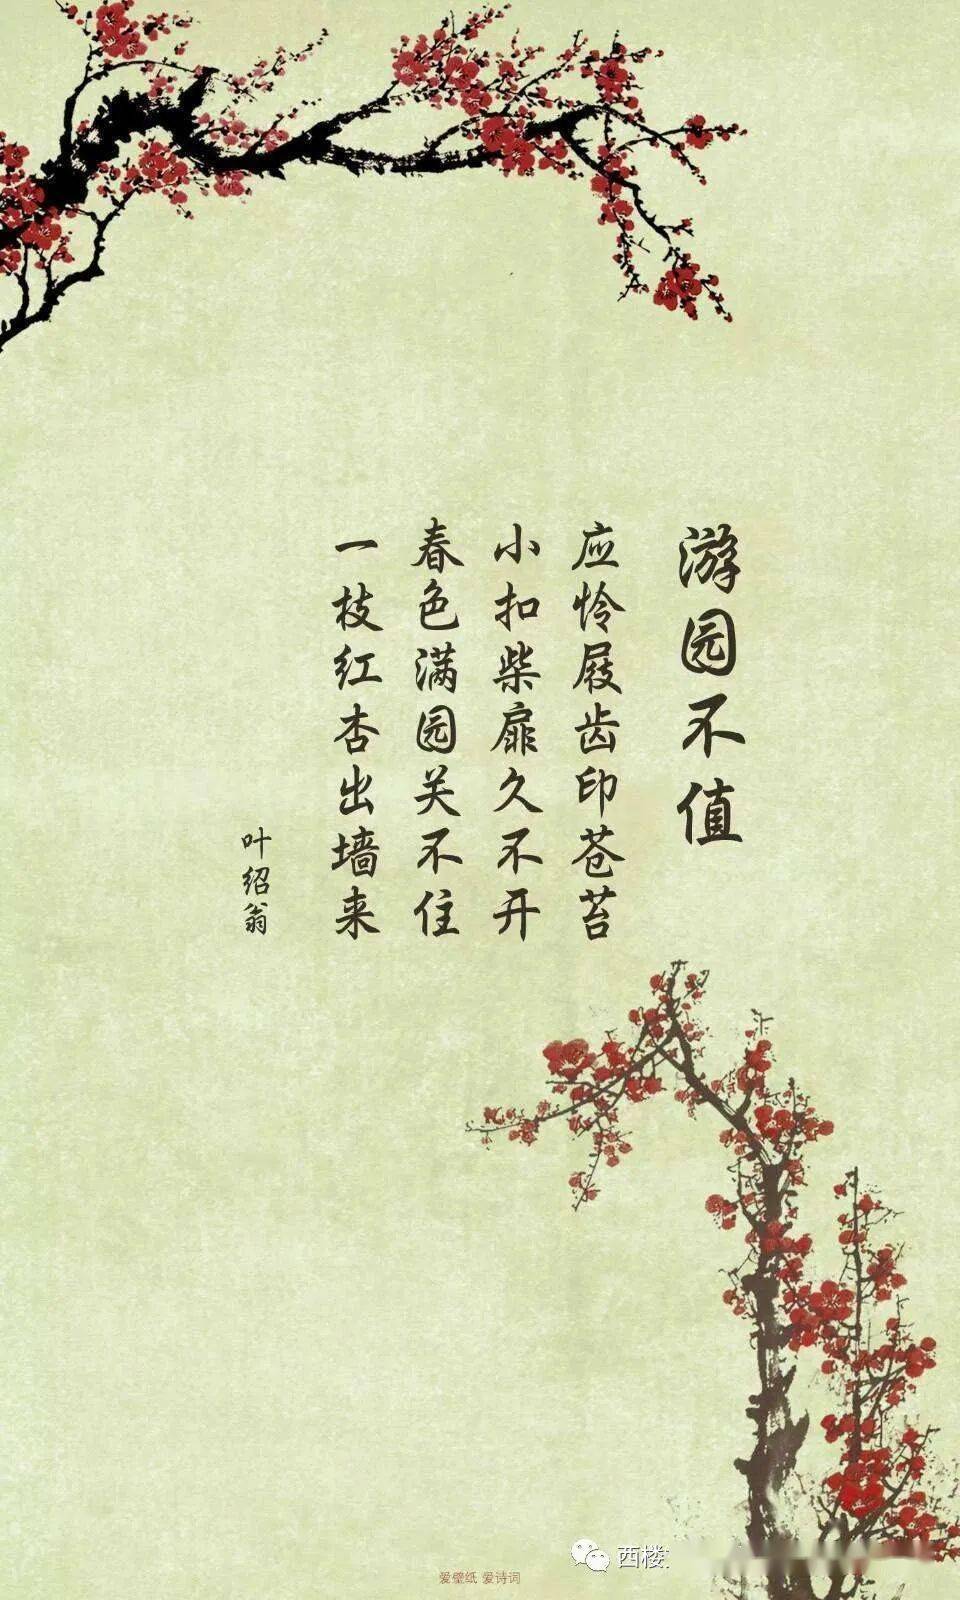 游园不值
应怜屐齿印苍苔
小扣柴扉久不开
春色满园关不住
一枝红杏出墙来
叶绍翁
西楼
爱壁纸 爱诗词